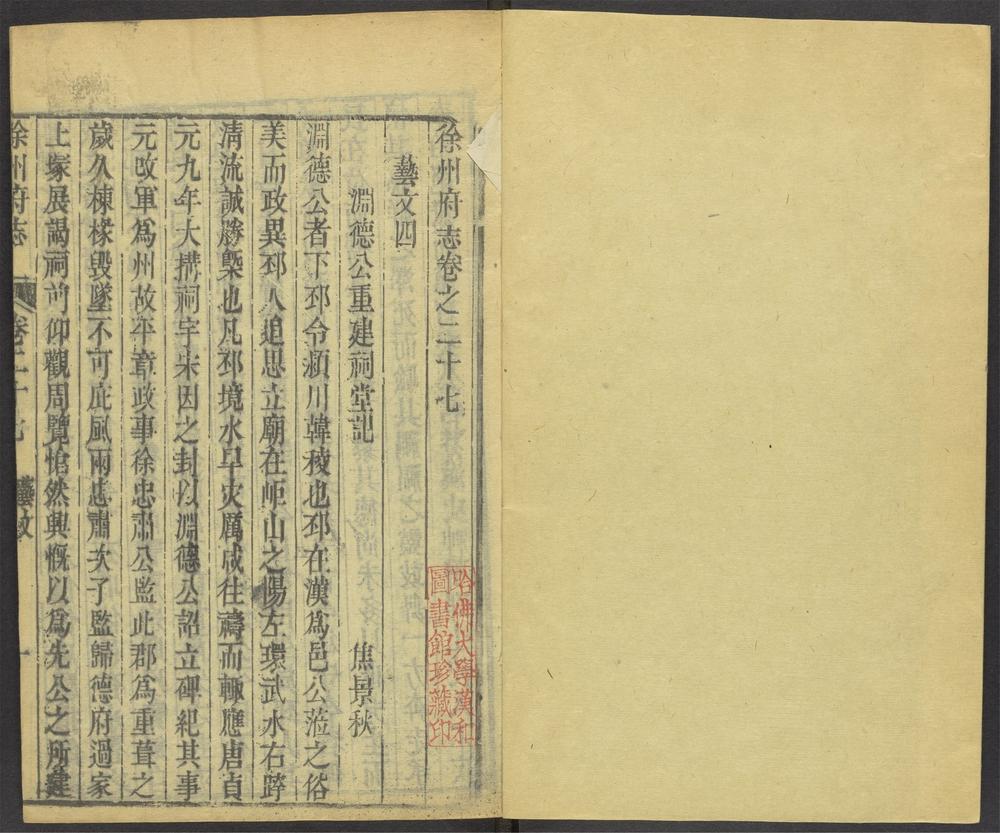 徐州府志卷之二十七
藝文四
淵德公重建祠堂記 焦景秋
淵德公者下邳令潁川韓稜也邳在漢爲邑公蒞之俗
美而政異邳人追思立廟在岠山之陽左環武水右蹲
清流誠勝槩也凡邳境水旱灾厲咸往禱而輒應唐貞
元九年大搆祠宇宋因之封以淵德公詔立碑紀其事
元改軍爲州故平章政事徐忠肅公監此郡爲重葺之
歲久棟椽毀墜不可庇風雨忠肅次子監歸德府過家
上塚展謁祠前仰觀周覽愴然興慨以爲先公之所建
徐州府志 卷二十七 藝文 一
哈佛大學漢和
圖書館珍藏印